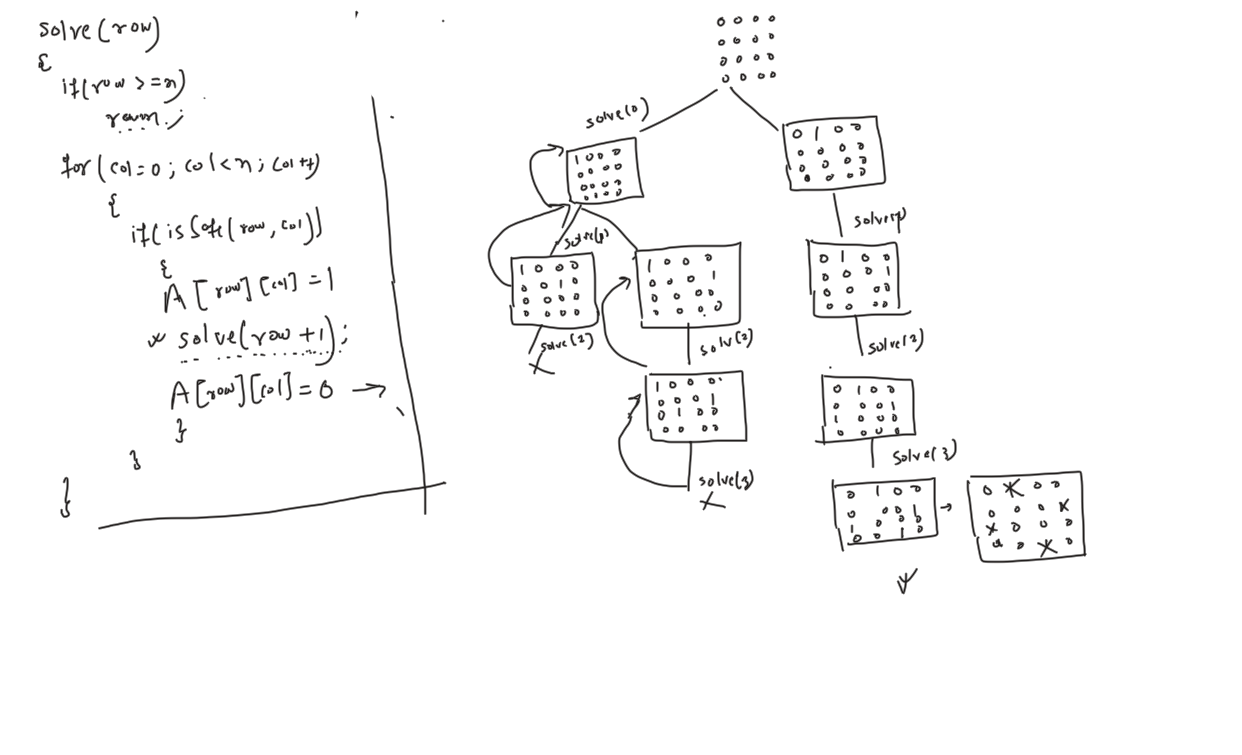 solve(row)
{
if(row >=n)
return;
for(col=0; col<n; col++)
{
if(isSafe(row, col))
{
A[row][col]=1
* solve(row+1);
A[row][col]=0 →
}
}
}
0 0 0 0
0 0 0 0
0 0 0 0
0 0 0 0
solve(0)
1 0 0 0
0 0 0 0
0 0 0 0
0 1 0 0
solve(1)
1 0 0 0
0 0 1 0
0 0 0 0
0 0 0 0
solve(2)
X
1 0 0 0
0 0 0 1
0 0 0 0
0 0 0 0
solv(2)
1 0 0 0
0 0 0 1
0 1 0 0
0 0 0 0
solve(3)
X
0 1 0 0
0 0 0 0
0 0 0 0
0 0 0 0
solve(1)
0 1 0 0
0 0 0 1
0 0 0 0
0 0 0 0
solve(2)
0 1 0 0
0 0 0 1
1 0 0 0
0 0 0 0
solve(3)
0 1 0 0
0 0 0 1
1 0 0 0
0 0 1 0
→
0 X 0 0
0 0 0 X
X 0 0 0
0 0 X 0